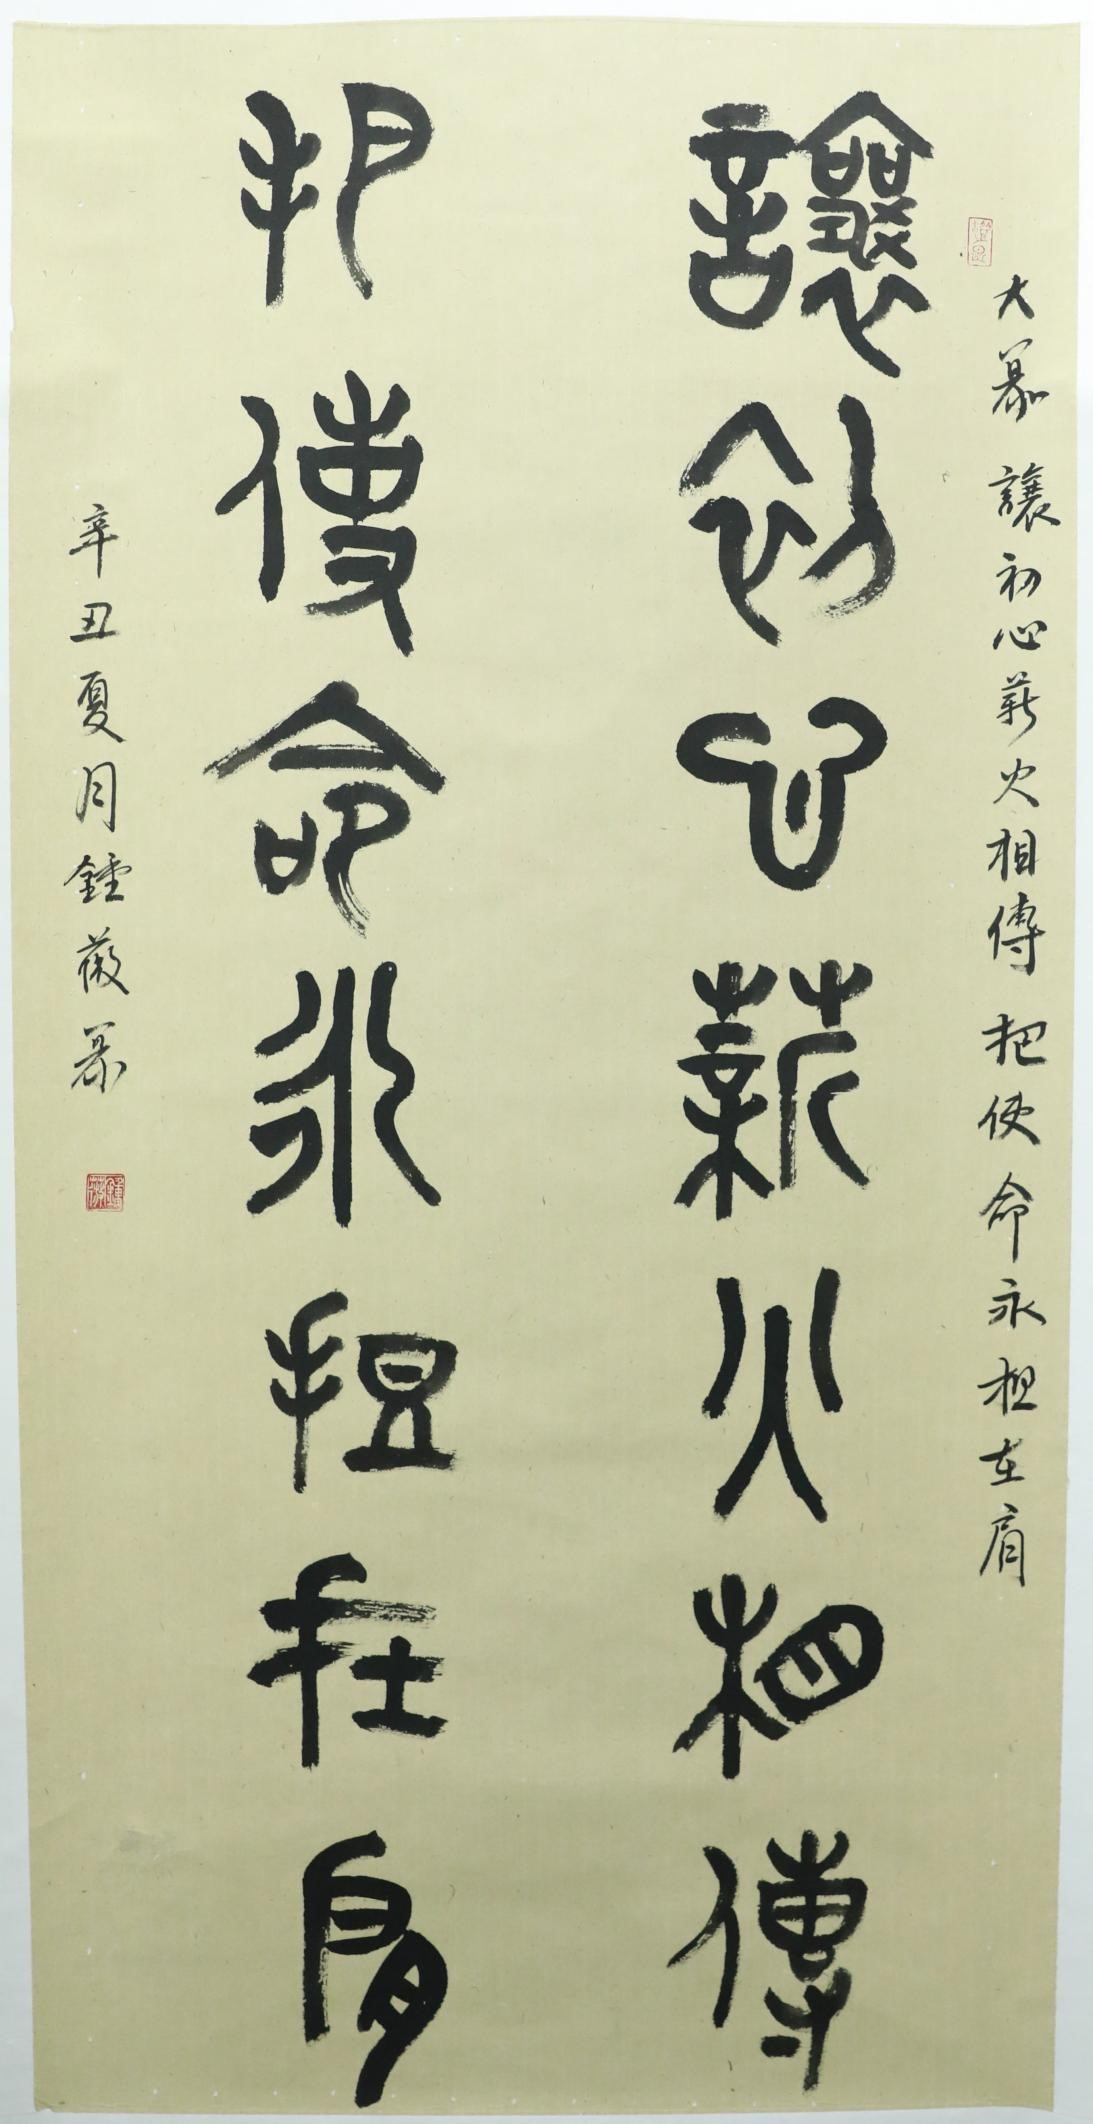 讓初心薪火相傳
把使命永担在肩
大篆 讓初心薪火相傳 把使命永担在肩
辛丑夏月鍾薇篆
鍾薇